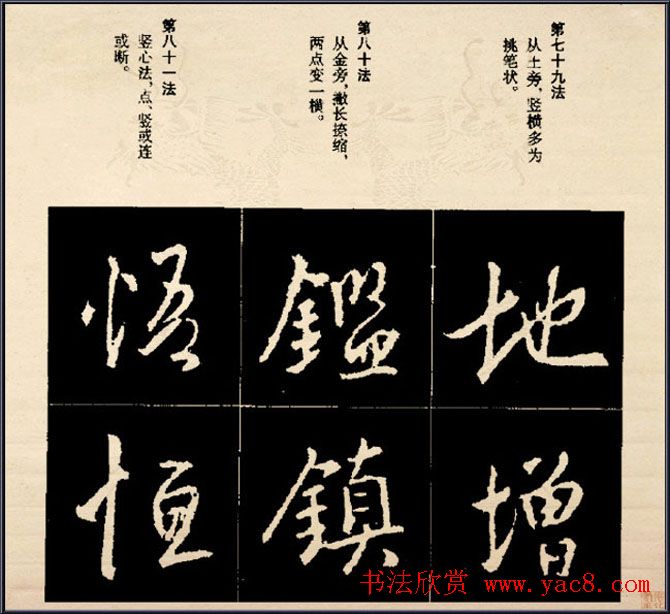 第七十九法
从土旁，竖横多为
挑笔状。
第八十法
从金旁，撇长捺缩，
两点变一横。
第八十一法
竖心法，点、竖或连
或断。
地
增
鑑
鎮
悟
恒
书法欣赏 www.yac8.com